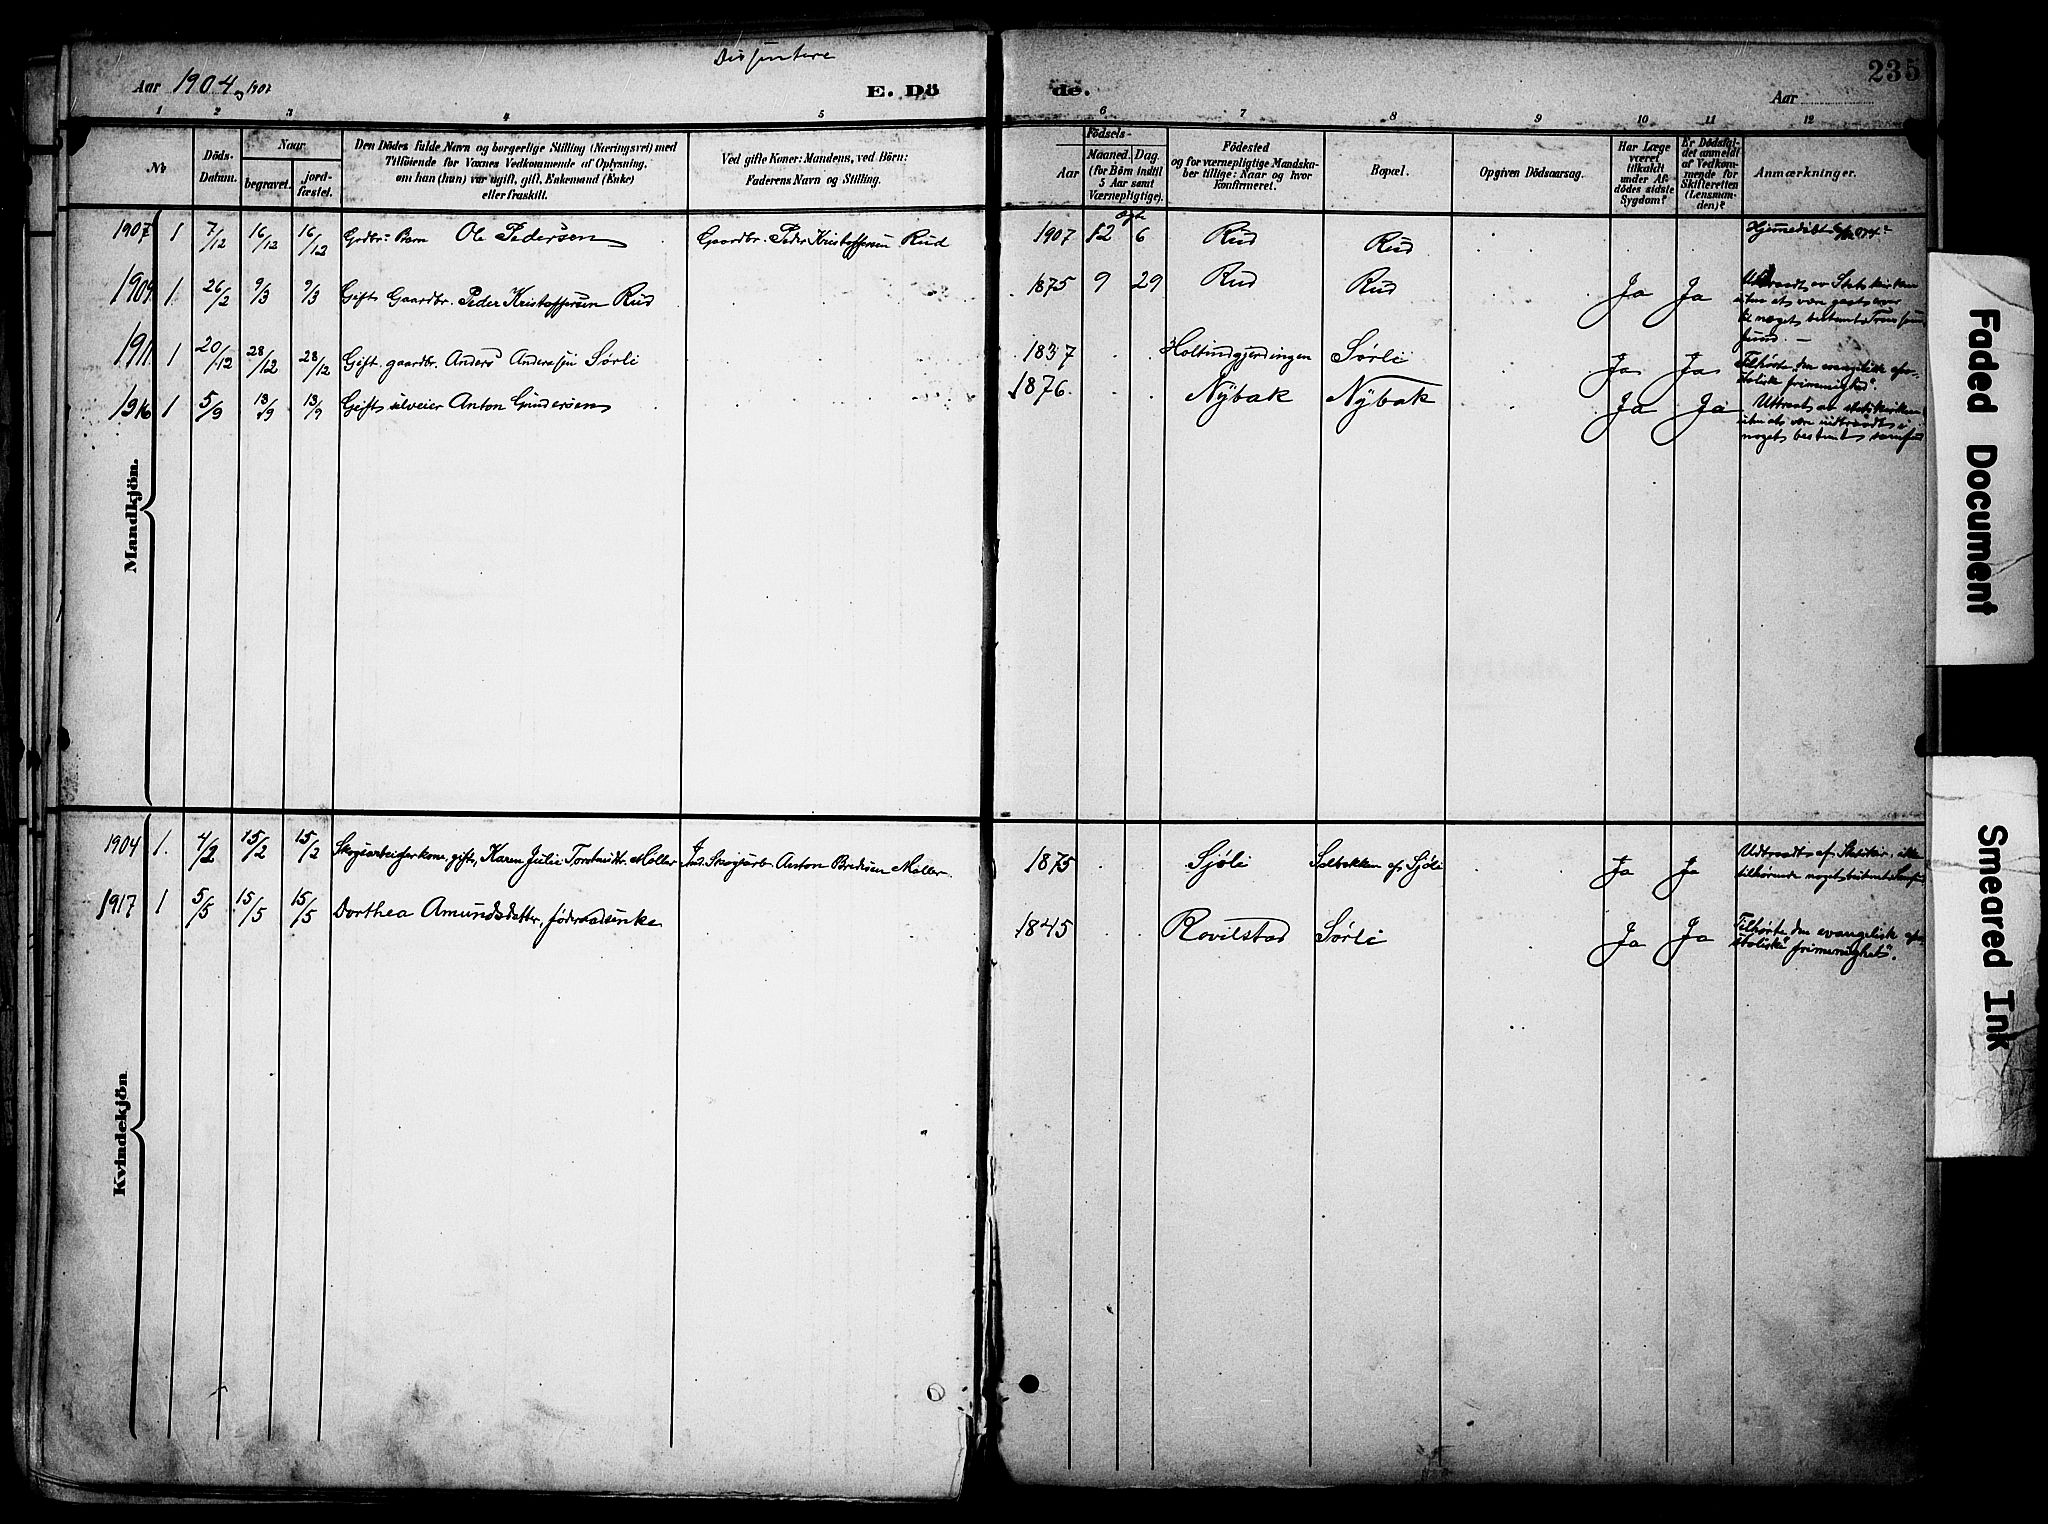 Dissentere
Aar 1904 og 1907
E. Dö
de.
Aar
235
1 2 3 4 5 6 7 8 9 10 11 12
No
Döds-Datum.
Naar
begravet.
jord-fæstet.
Den Dödes fulde Navn og borgerlige Stilling (Næringsvei) med
Tilföiende for Voxnes Vedkommende af Oplysning,
om han (hun) var ugift, gift, Enkemand (Enke)
eller fraskilt.
Ved gifte Koner: Mandens, ved Börn:
Faderens Navn og Stilling.
Födsels-
Aar
Maaned. Dag.
(for Börn indtil
5 Aar samt
Værnepligtige).
Födested
og for værnepligtige Mandska-
ber tillige: Naar og hvor
konfirmeret.
Bopæl.
Opgiven Dödsaarsag.
Har Læge
været
tilkaldt
under Af-
dödes sidste
Sygdom?
Er Dödsfal-
det anmeldt
af Vedkom-
mende for
Skifteretten
(Lensman-
den)?
Anmærkninger.
Mandkjön.
1907 1 7/12 16/12 16/12 Grdbr: Barn Ole Pedersen Gaardbr. Peder Kristoffersen Rud 1907 12 6 Rud Rud Hjemmedøbt
1909 1 26/2 9/3 9/3 Gift Gaardbr. Peder Kristoffersen Rud 1875 9 29 Rud Rud Ja Ja Udtraadt av Statskirken
uten at være gaat over
til noget bestemt Trossam-
fund.
1911 1 20/12 28/12 28/12 Gift gaardbr. Anders Andersen Sørli 1837 Holtindgjerdingen Sørli Ja Ja Tilhørte "den evangelisk apo-
stolisk frimenighed".
1916 1 5/9 13/9 13/9 Gift selveier Anton Gundersen 1876 Nybak Nybak Ja Ja Uttraat av statskirken
uten at være indtraadt i
noget bestemt samfund
Kvindekjön
1904 1. 4/2 15/2 15/2 Skogsarbeiderkone, gift, Karen Julie Torstensdtr. Møller Skogsarb. Anton Bredesen Møller. 1875 Sjøli Solbakken af Sjøli Ja Ja Udtraadt af Statskir., ikke
tilhørende noget bestemt Samfund
1917 1 5/5 15/5 15/5 Dorthea Amundsdatter, føderaadsenke 1845 Rovilstad Sørli Ja Ja Tilhørte "den evangelisk apo-
stoliske frimenighet".
Faded Document
Smeared Ink